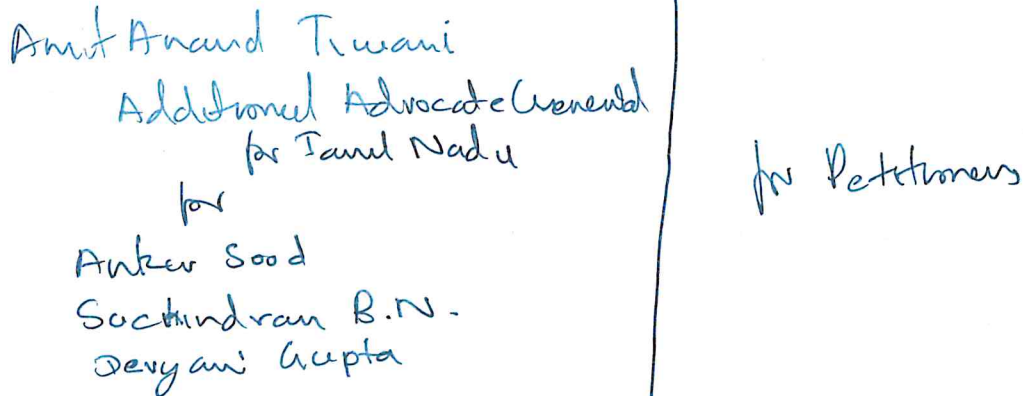 Amit Anand Tiwari
Additional Advocate General
for Tamil Nadu
for
Ankur Sood
Suchindran B.N.
Devyani Gupta
for Petitioners